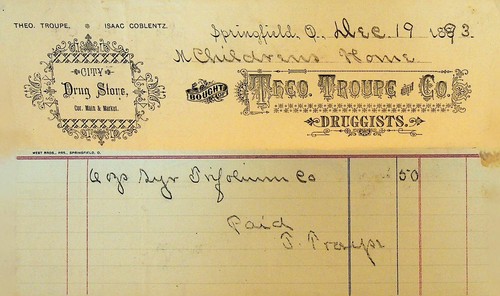 THEO. TROUPE. ISAAC COBLENTZ.
Springfield, O. Dec. 19 1893.
M Childrens Home
CITY
Drug Store,
Cor. Main & Market.
BOUGHT OF
THEO. TROUPE AND CO.
DRUGGISTS.
WEST BROS., PRS., SPRINGFIELD, O.
6 ozs Syr Trifolium Co 50
Paid
T. Troupe